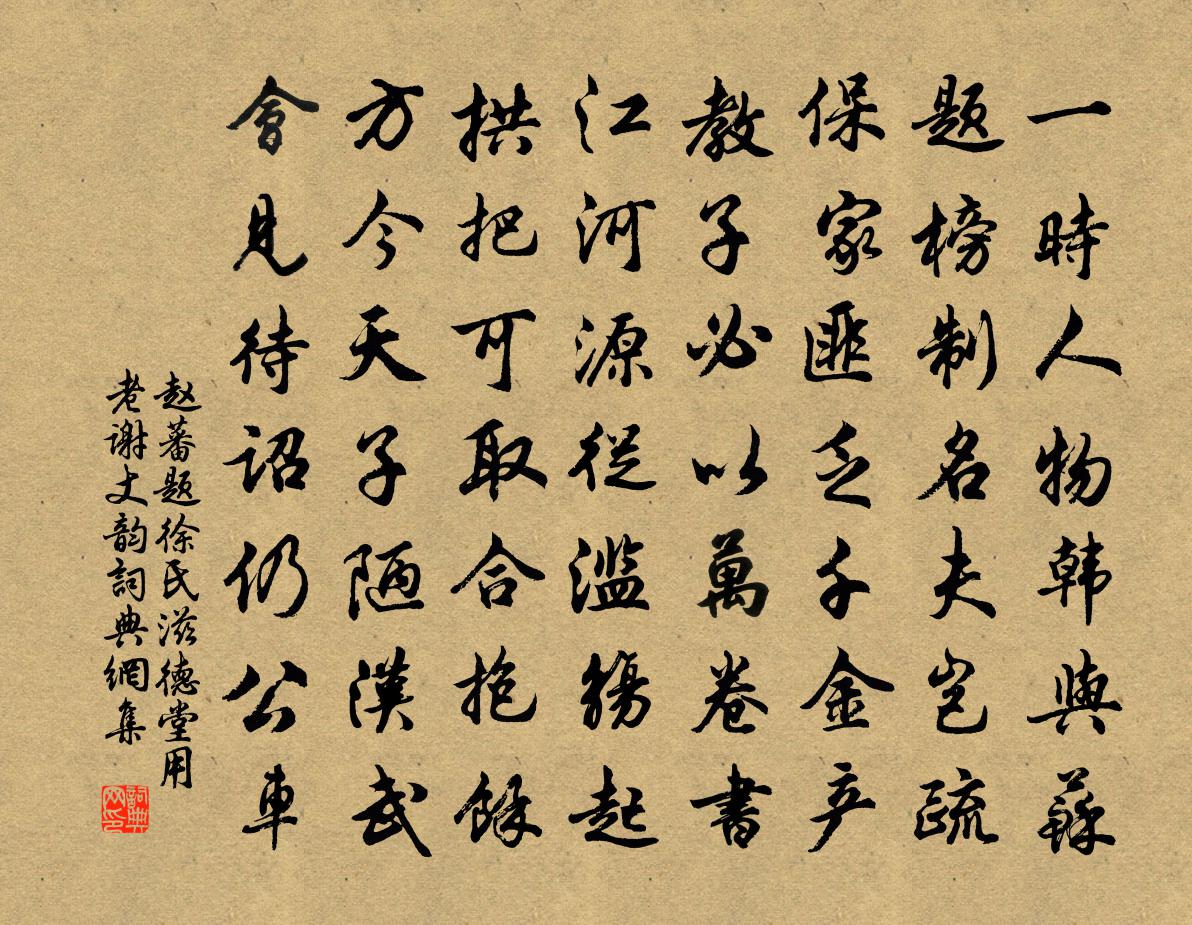 一時人物韩與蘇
题榜制名夫岂疏
保家匪乏千金产
教子必以萬卷書
江河源從滥觞起
拱把可取合抱餘
方今天子陋漢武
會見待詔仍公車
赵蕃题徐氏滋德堂用
老谢丈韵詞典網集
詞典网印